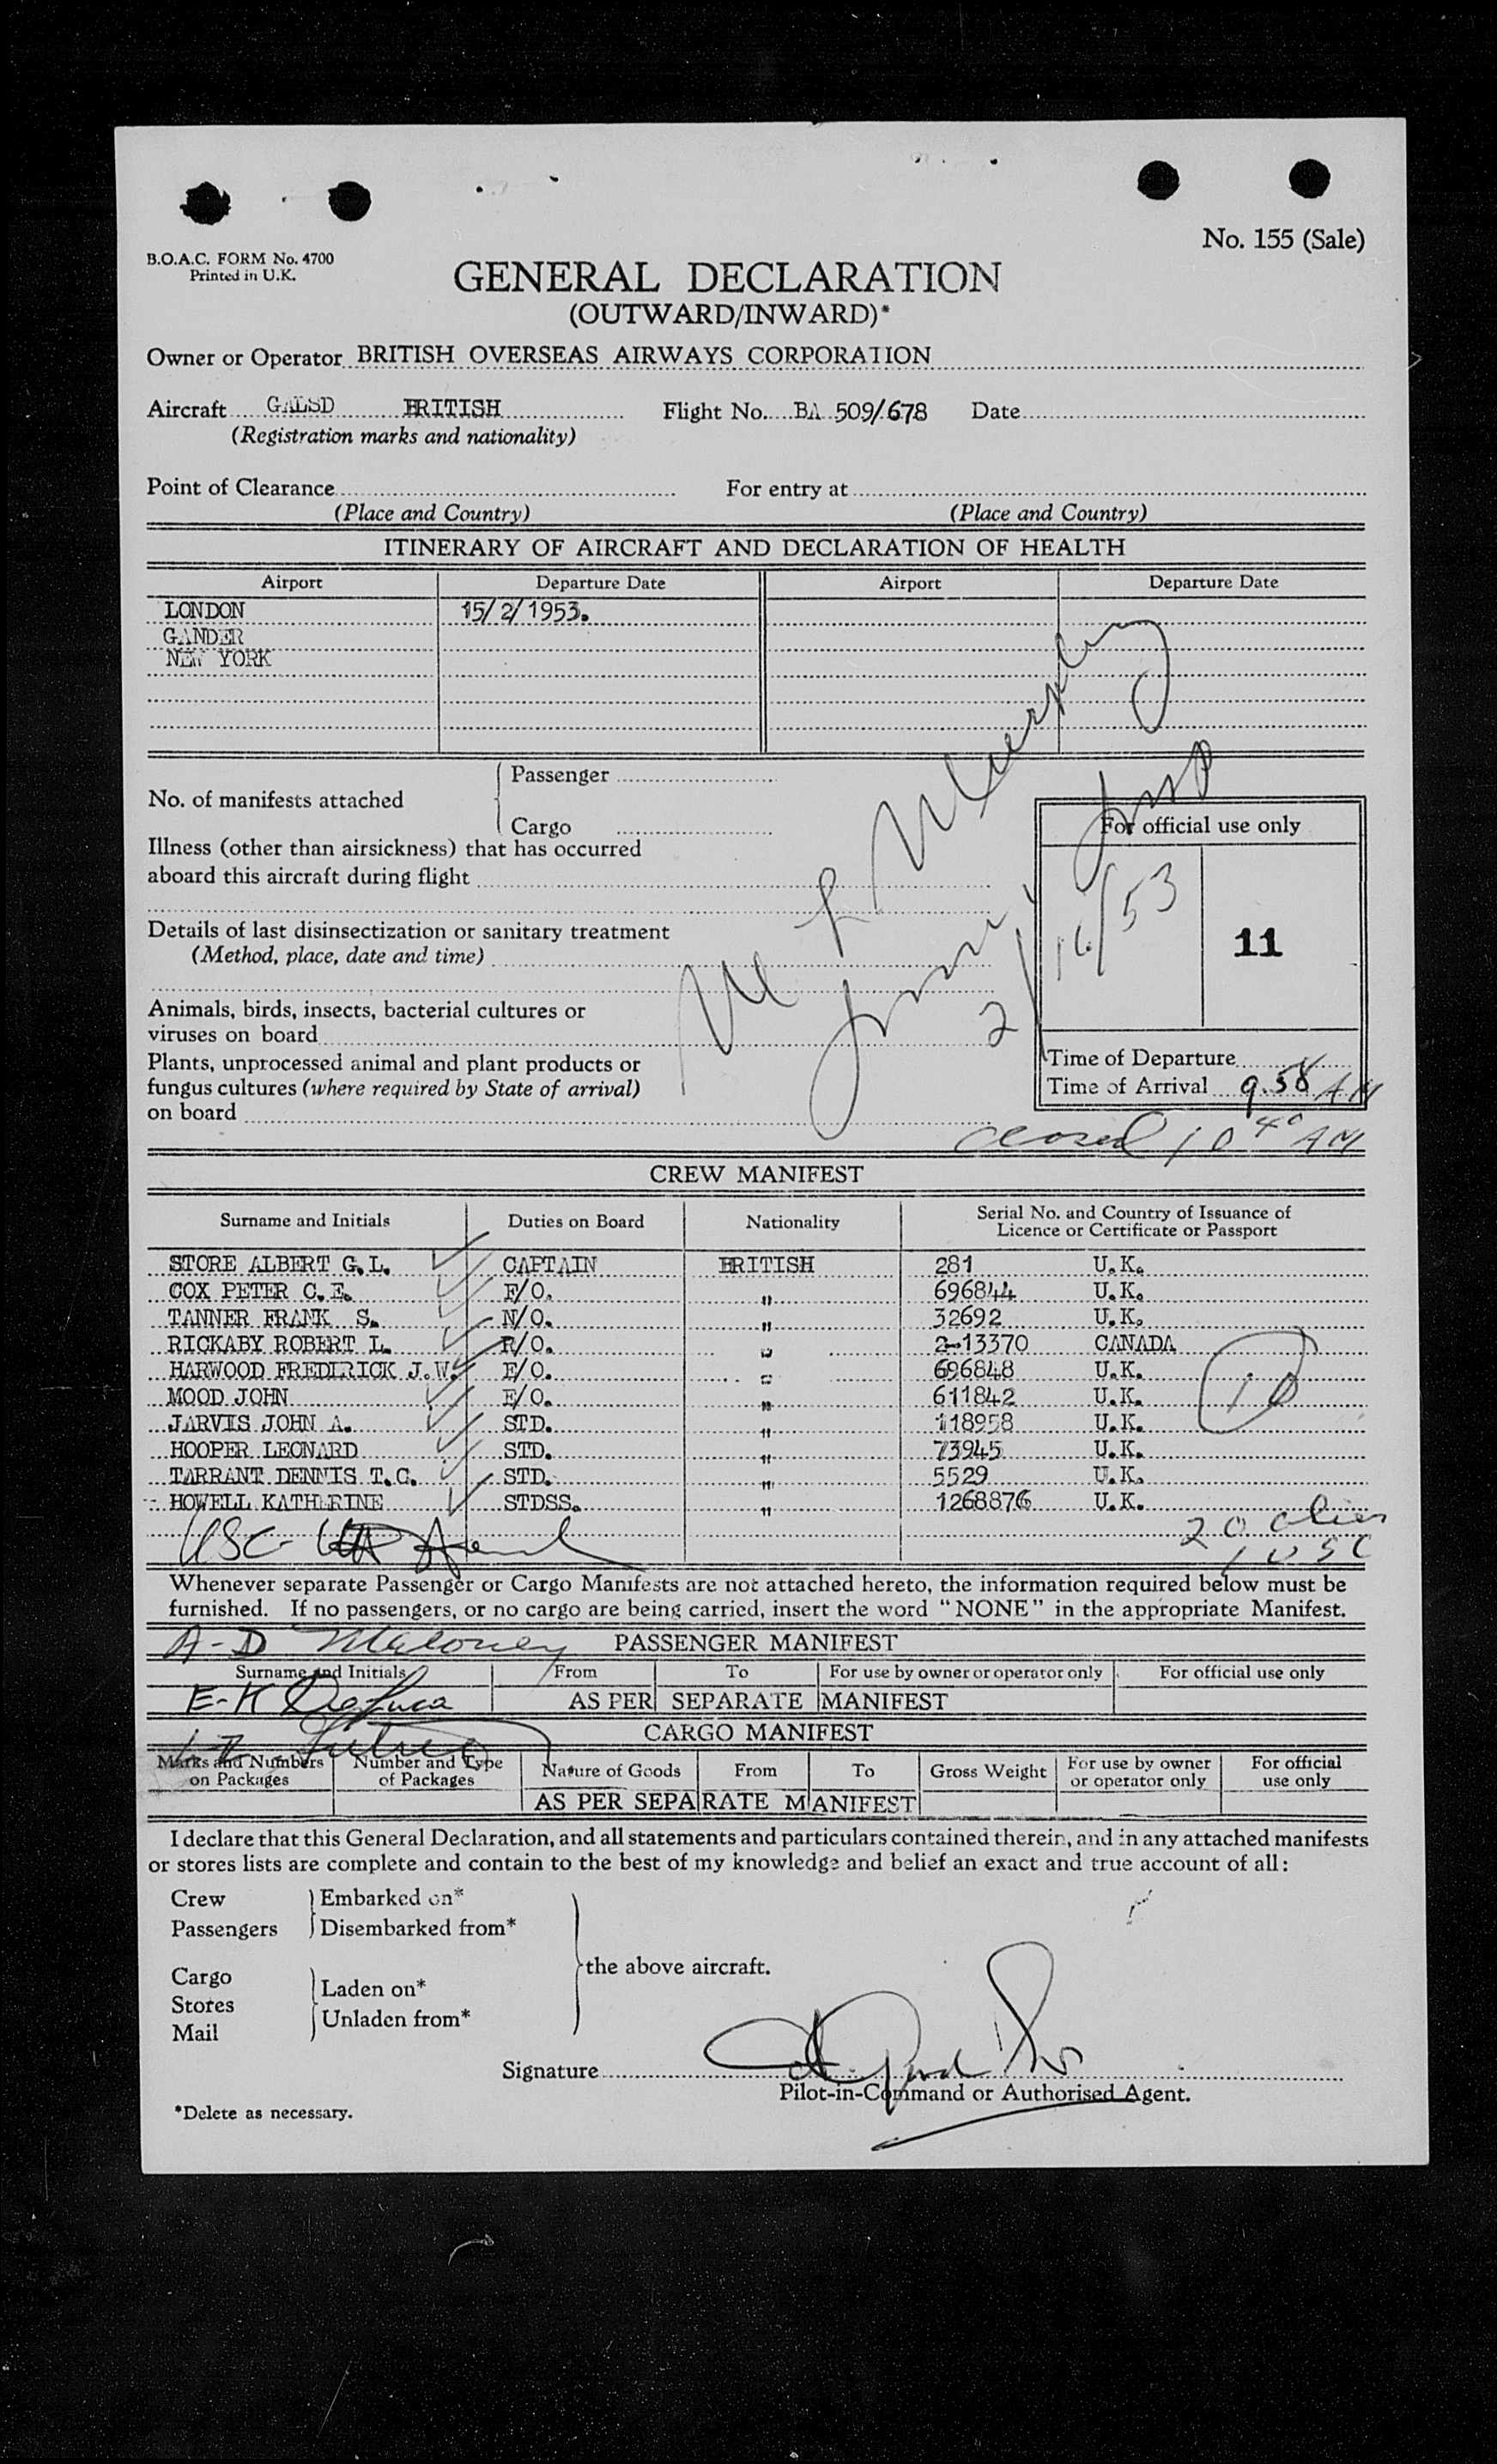 No. 155 (Sale)
B.O.A.C. FORM No. 4700
Printed in U.K.
GENERAL DECLARATION
(OUTWARD/INWARD)*
Owner or Operator BRITISH OVERSEAS AIRWAYS CORPORATION
Aircraft GALSD BRITISH Flight No. BA 509/678 Date
(Registration marks and nationality)
Point of Clearance For entry at
(Place and Country) (Place and Country)
ITINERARY OF AIRCRAFT AND DECLARATION OF HEALTH
Airport Departure Date Airport Departure Date
LONDON 15/2/1953.
GANDER
NEW YORK
No. of manifests attached
Passenger
Cargo
Illness (other than airsickness) that has occurred
aboard this aircraft during flight
Details of last disinsectization or sanitary treatment
(Method, place, date and time)
Animals, birds, insects, bacterial cultures or
viruses on board
Plants, unprocessed animal and plant products or
fungus cultures (where required by State of arrival)
on board
Murphy
2/16/53
For official use only
11
Time of Departure
Time of Arrival 9.58 AM
closed 10 40 AM
CREW MANIFEST
Surname and Initials Duties on Board Nationality Serial No. and Country of Issuance of Licence or Certificate or Passport
STORE ALBERT G.L. CAPTAIN BRITISH 281 U.K.
COX PETER C.E. F/O. " 696844 U.K.
TANNER FRANK S. N/O. " 32692 U.K.
RICKABY ROBERT L. R/O. " 2-13370 CANADA
HARWOOD FREDERICK J.W. E/O. " 696848 U.K.
MOOD JOHN E/O. " 611842 U.K.
JARVIS JOHN A. STD. " 118958 U.K.
HOOPER LEONARD STD. " 73945 U.K.
TARRANT DENNIS T.C. STD. " 5529 U.K.
HOWELL KATHERINE STDSS. " 1268876 U.K.
10
USC-
20 alien
1 USC
Whenever separate Passenger or Cargo Manifests are not attached hereto, the information required below must be
furnished. If no passengers, or no cargo are being carried, insert the word "NONE" in the appropriate Manifest.
A-D Maloney
PASSENGER MANIFEST
Surname and Initials From To For use by owner or operator only For official use only
E-K
AS PER SEPARATE MANIFEST
CARGO MANIFEST
L-Z
Marks and Numbers on Packages Number and Type of Packages Nature of Goods From To Gross Weight For use by owner or operator only For official use only
AS PER SEPARATE MANIFEST
I declare that this General Declaration, and all statements and particulars contained therein, and in any attached manifests
or stores lists are complete and contain to the best of my knowledge and belief an exact and true account of all:
Crew Embarked on*
Passengers Disembarked from*
the above aircraft.
Cargo
Stores
Mail
Laden on*
Unladen from*
Signature
Pilot-in-Command or Authorised Agent.
*Delete as necessary.